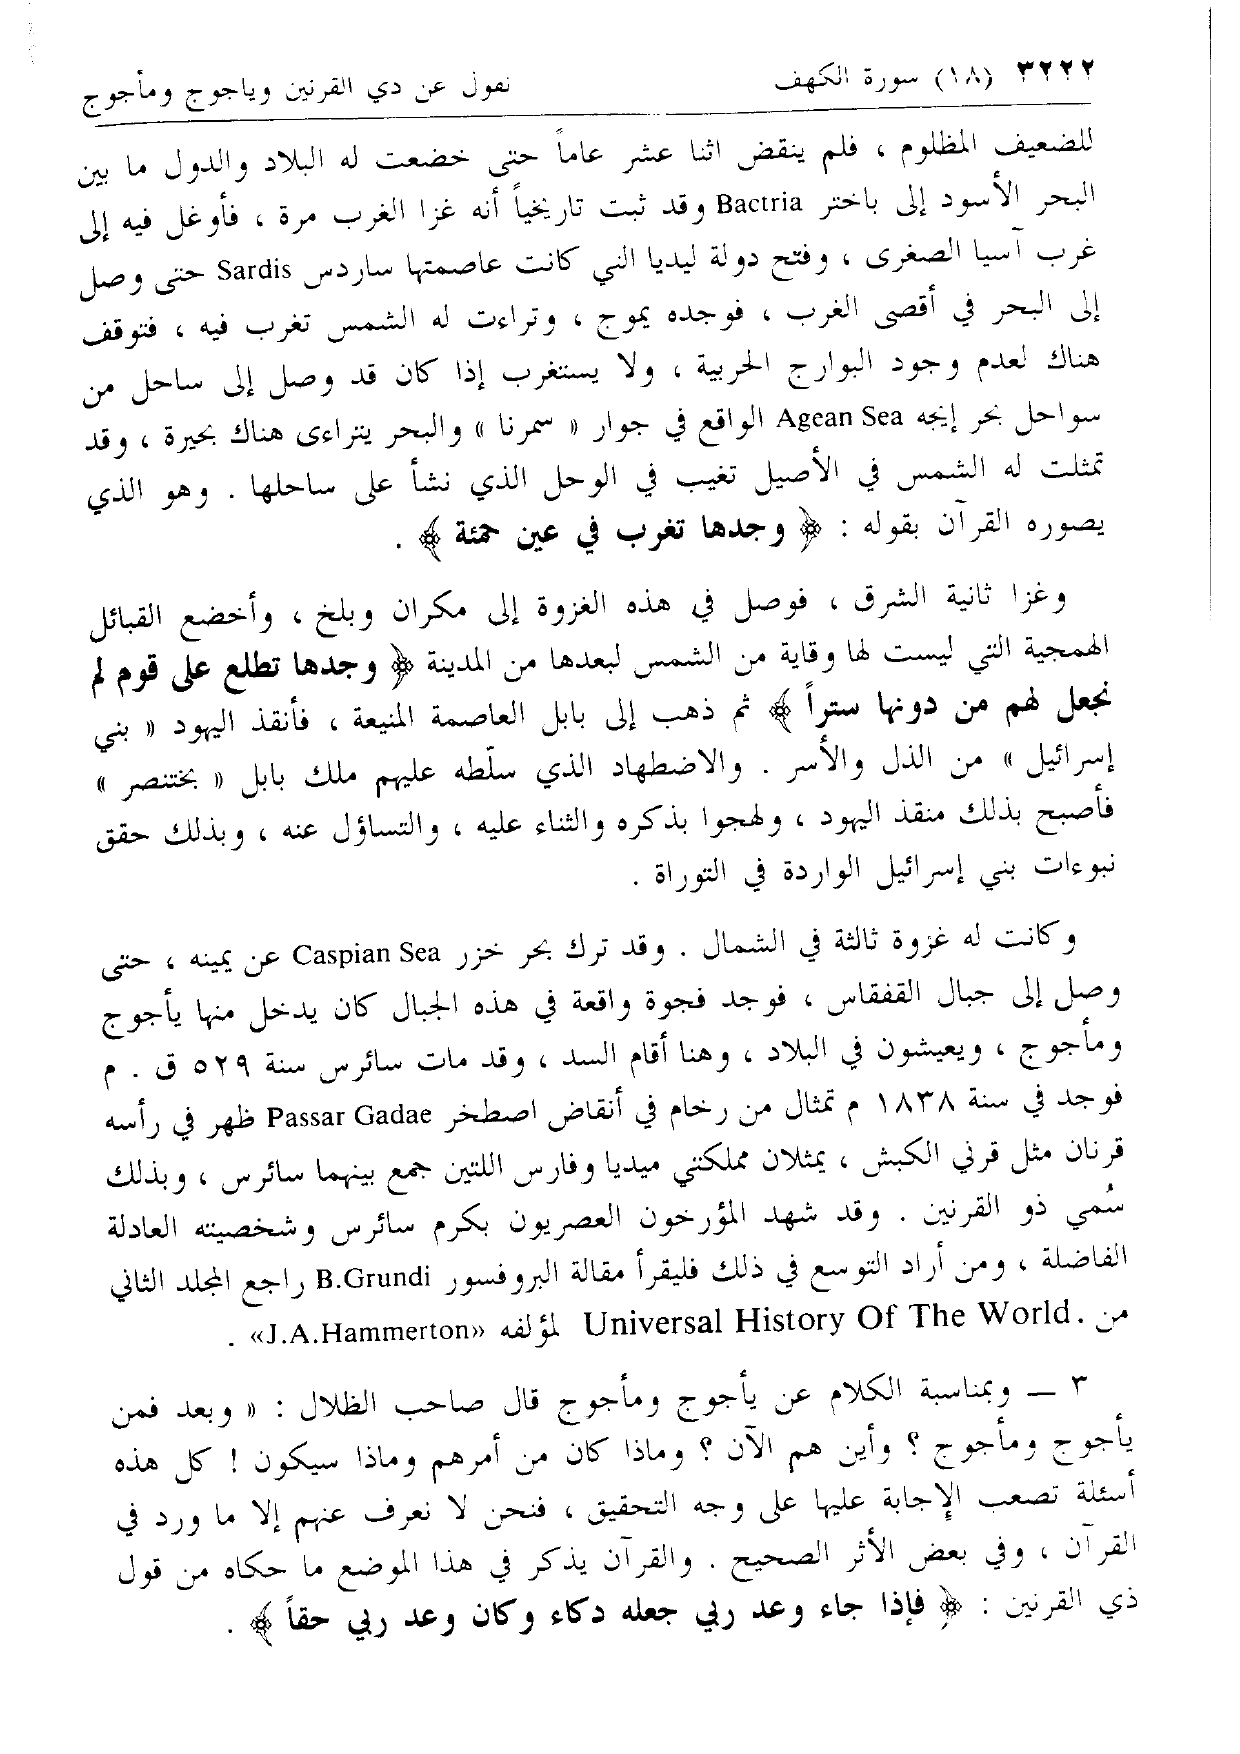 ٣٢٢٢ (١٨) سورة الكهف نقول عن ذي القرنين وياجوج ومأجوج
للضعيف المظلوم ، فلم ينقض اثنا عشر عاماً حتى خضعت له البلاد والدول ما بين
البحر الأسود إلى باختر Bactria وقد ثبت تاريخياً أنه غزا الغرب مرة ، فأوغل فيه إلى
غرب آسيا الصغرى ، وفتح دولة ليديا التي كانت عاصمتها ساردس Sardis حتى وصل
إلى البحر في أقصى الغرب ، فوجده يموج ، وتراءت له الشمس تغرب فيه ، فتوقف
هناك لعدم وجود البوارج الحربية ، ولا يستغرب إذا كان قد وصل إلى ساحل من
سواحل بحر إيجه Agean Sea الواقع في جوار « سمرنا » والبحر يتراءى هناك بحيرة ، وقد
تمثلت له الشمس في الأصيل تغيب في الوحل الذي نشأ على ساحلها . وهو الذي
يصوره القرآن بقوله : ﴿ وجدها تغرب في عين حمئة ﴾ .
وغزا ثانية الشرق ، فوصل في هذه الغزوة إلى مكران وبلخ ، وأخضع القبائل
الهمجية التي ليست لها وقاية من الشمس لبعدها من المدينة ﴿ وجدها تطلع على قوم لم
نجعل لهم من دونها ستراً ﴾ ثم ذهب إلى بابل العاصمة المنيعة ، فأنقذ اليهود « بني
إسرائيل » من الذل والأسر . والاضطهاد الذي سلّطه عليهم ملك بابل « بختنصر »
فأصبح بذلك منقذ اليهود ، ولهجوا بذكره والثناء عليه ، والتساؤل عنه ، وبذلك حقق
نبوءات بني إسرائيل الواردة في التوراة .
وكانت له غزوة ثالثة في الشمال . وقد ترك بحر خزر Caspian Sea عن يمينه ، حتى
وصل إلى جبال القفقاس ، فوجد فجوة واقعة في هذه الجبال كان يدخل منها يأجوج
ومأجوج ، ويعيشون في البلاد ، وهنا أقام السد ، وقد مات سائرس سنة ٥٢٩ ق . م
فوجد في سنة ١٨٣٨ م تمثال من رخام في أنقاض اصطخر Passar Gadae ظهر في رأسه
قرنان مثل قرني الكبش ، يمثلان مملكتي ميديا وفارس اللتين جمع بينهما سائرس ، وبذلك
سُمي ذو القرنين . وقد شهد المؤرخون العصريون بكرم سائرس وشخصيته العادلة
الفاضلة ، ومن أراد التوسع في ذلك فليقرأ مقالة البروفسور B.Grundi راجع المجلد الثاني
من Universal History Of The World. لمؤلفه «J.A.Hammerton» .
٣ ــ وبمناسبة الكلام عن يأجوج ومأجوج قال صاحب الظلال : « وبعد فمن
يأجوج ومأجوج ؟ وأين هم الآن ؟ وماذا كان من أمرهم وماذا سيكون ! كل هذه
أسئلة تصعب الإجابة عليها على وجه التحقيق ، فنحن لا نعرف عنهم إلا ما ورد في
القرآن ، وفي بعض الأثر الصحيح . والقرآن يذكر في هذا الموضع ما حكاه من قول
ذي القرنين : ﴿ فإذا جاء وعد ربي جعله دكاء وكان وعد ربي حقاً ﴾ .